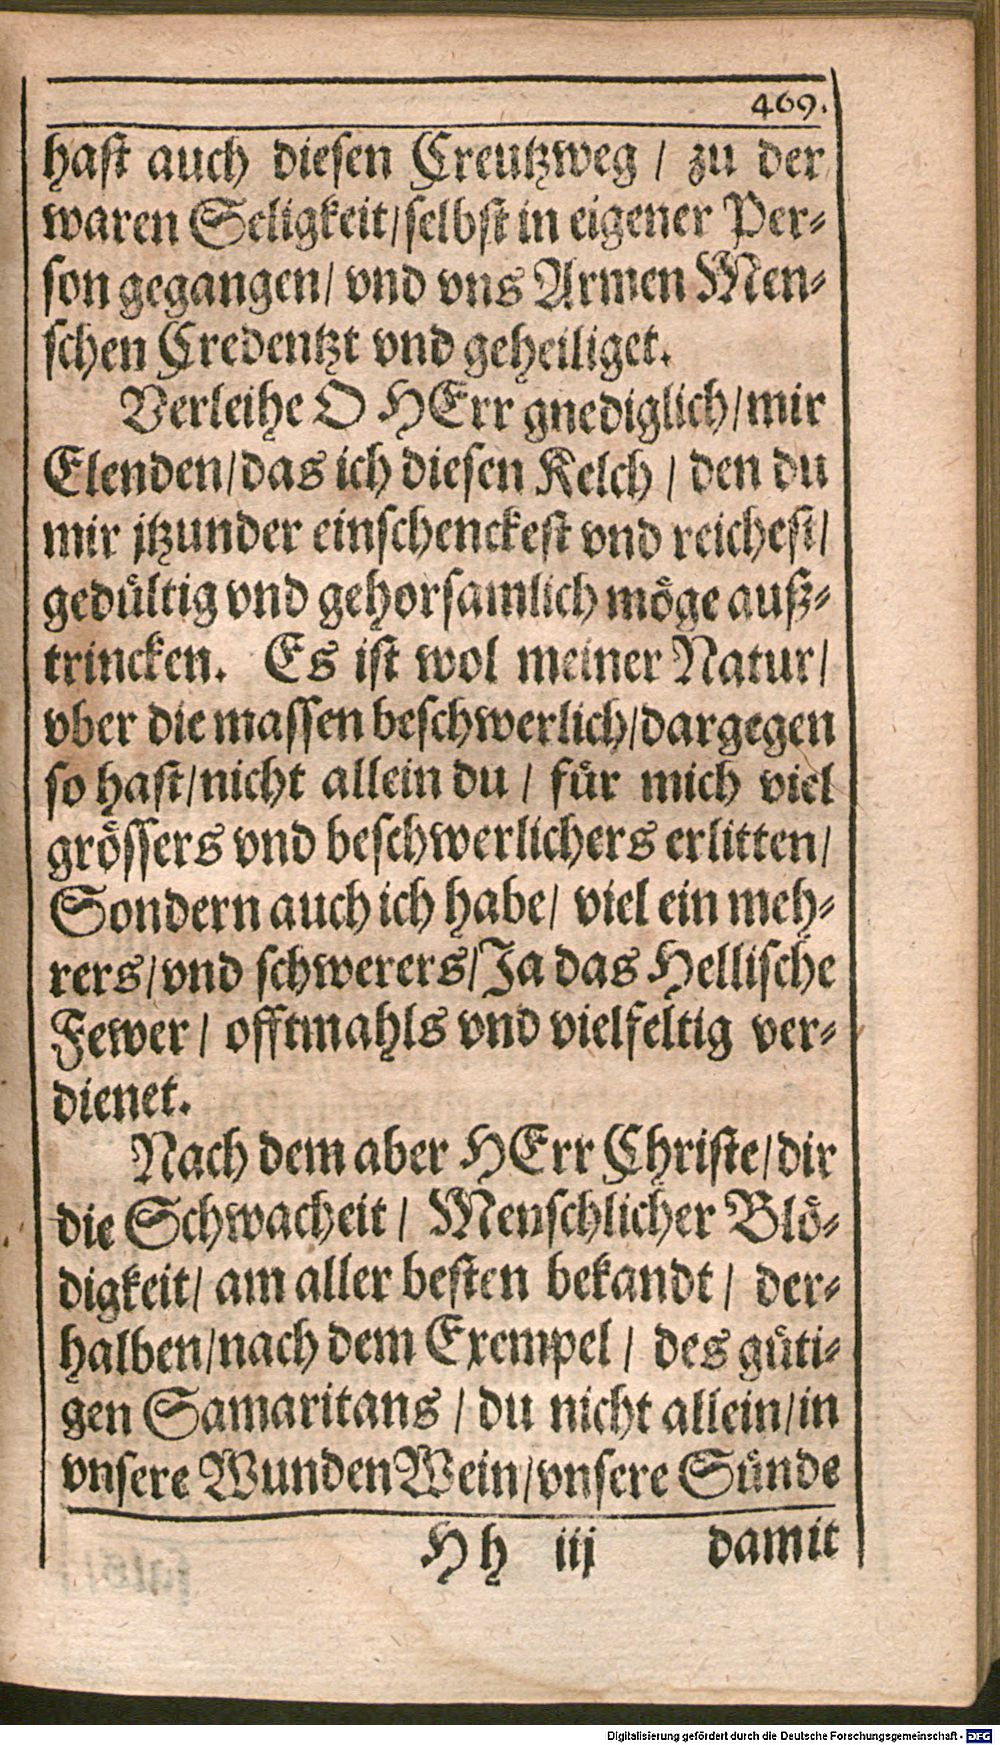 469.
hast auch diesen Creutzweg / zu der
waren Seligkeit/selbst in eigener Per-
son gegangen/ vnd vns Armen Men-
schen Credentzt vnd geheiliget.
Verleihe O HErr gnediglich/mir
Elenden/das ich diesen Kelch / den du
mir jtzunder einschenckest vnd reichest/
gedültig vnd gehorsamlich möge auß-
trincken. Es ist wol meiner Natur/
vber die massen beschwerlich/dargegen
so hast/nicht allein du / für mich viel
grössers vnd beschwerlichers erlitten/
Sondern auch ich habe/ viel ein meh-
rers/vnd schwerers/Ja das Hellische
Fewer / offtmahls vnd vielfeltig ver-
dienet.
Nach dem aber HErr Christe/dir
die Schwacheit / Menschlicher Blö-
digkeit/ am aller besten bekandt / der-
halben/nach dem Exempel / des güti-
gen Samaritans / du nicht allein/in
vnsere Wunden Wein/vnsere Sünde
H h iij damit
Digitalisierung gefördert durch die Deutsche Forschungsgemeinschaft - DFG